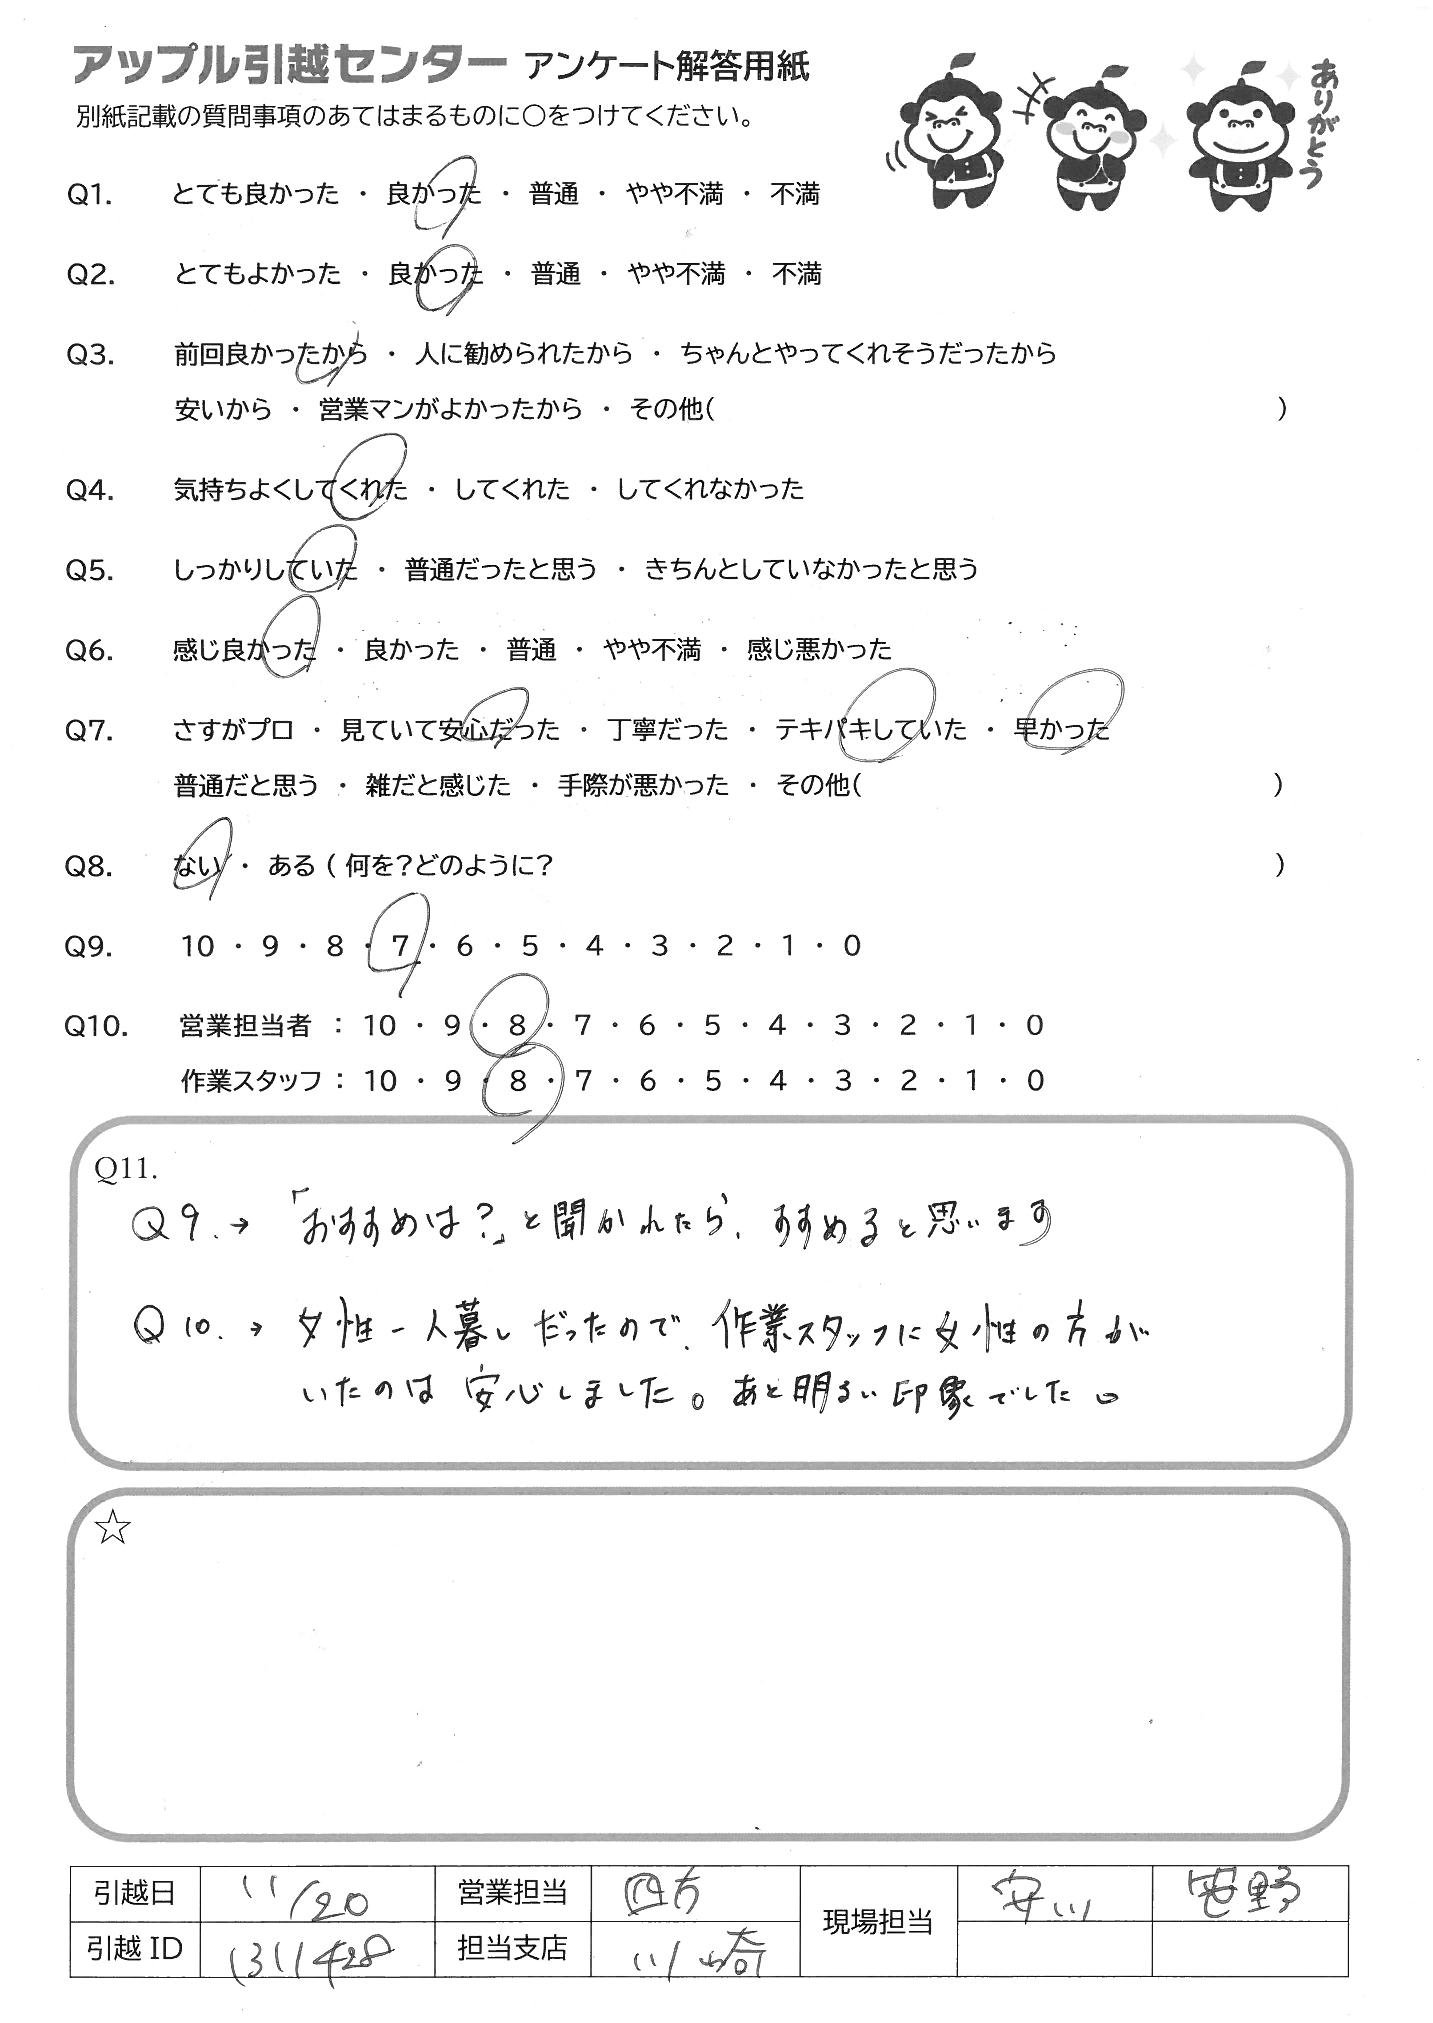 アップル引越センター アンケート解答用紙
別紙記載の質問事項のあてはまるものに○をつけてください。
ありがとう
Q1. とても良かった ・ 良かった ・ 普通 ・ やや不満 ・ 不満
Q2. とてもよかった ・ 良かった ・ 普通 ・ やや不満 ・ 不満
Q3. 前回良かったから ・ 人に勧められたから ・ ちゃんとやってくれそうだったから
安いから ・ 営業マンがよかったから ・ その他( )
Q4. 気持ちよくしてくれた ・ してくれた ・ してくれなかった
Q5. しっかりしていた ・ 普通だったと思う ・ きちんとしていなかったと思う
Q6. 感じ良かった ・ 良かった ・ 普通 ・ やや不満 ・ 感じ悪かった
Q7. さすがプロ ・ 見ていて安心だった ・ 丁寧だった ・ テキパキしていた ・ 早かった
普通だと思う ・ 雑だと感じた ・ 手際が悪かった ・ その他( )
Q8. ない ・ ある ( 何を?どのように? )
Q9. 10 ・ 9 ・ 8 ・ 7 ・ 6 ・ 5 ・ 4 ・ 3 ・ 2 ・ 1 ・ 0
Q10. 営業担当者 : 10 ・ 9 ・ 8 ・ 7 ・ 6 ・ 5 ・ 4 ・ 3 ・ 2 ・ 1 ・ 0
作業スタッフ : 10 ・ 9 ・ 8 ・ 7 ・ 6 ・ 5 ・ 4 ・ 3 ・ 2 ・ 1 ・ 0
Q11.
Q9.→「おすすめは?」と聞かれたら、すすめると思います
Q10.→ 女性一人暮しだったので、作業スタッフに女性の方が
いたのは安心しました。あと明るい印象でした。
☆
引越日 11/20 営業担当 四方 現場担当 安川 笹野
引越ID 1311428 担当支店 川崎